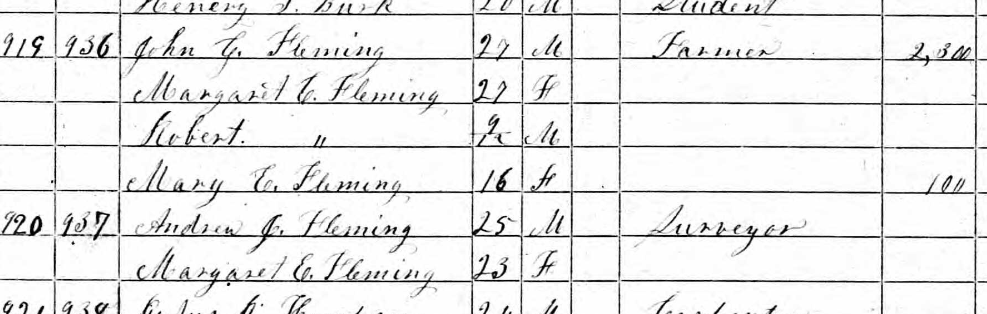 Henery J. Burk 20 M Student
919 936 John G. Fleming 27 M Farmer 2,300
Margaret E. Fleming 27 F
Robert. " 9/12 M
Mary E. Fleming 16 F 100
920 937 Andrew J. Fleming 25 M Surveyor
Margaret E. Fleming 23 F
921 938 M